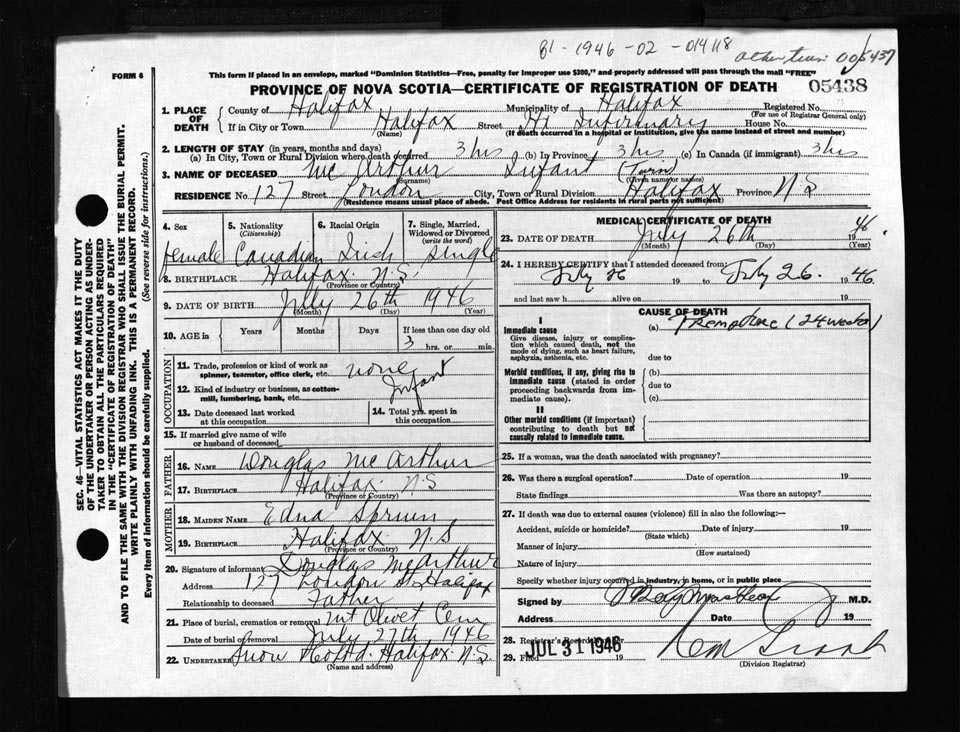 81-1946-02-014118
other twin 005437
FORM 6
This form if placed in an envelope, marked "Dominion Statistics—Free, penalty for improper use $300," and properly addressed will pass through the mail "FREE"
PROVINCE OF NOVA SCOTIA—CERTIFICATE OF REGISTRATION OF DEATH 05438
1. PLACE OF DEATH
County of Halifax Municipality of Halifax Registered No.
(For use of Registrar General only)
If in City or Town Halifax Street Hx Infirmary House No.
(Name) (If death occurred in a hospital or institution, give the name instead of street and number)
2. LENGTH OF STAY (in years, months and days)
(a) In City, Town or Rural Division where death occurred 3 hrs (b) In Province 3 hrs (c) In Canada (if immigrant) 3 hrs
3. NAME OF DECEASED McArthur Infant (Twin)
(Given name or names)
RESIDENCE No. 127 Street London City, Town or Rural Division Halifax Province N S
(Residence means usual place of abode. Post Office Address for residents in rural parts not sufficient)
4. Sex 5. Nationality 6. Racial Origin 7. Single, Married, Widowed or Divorced
(Citizenship) (write the word)
female Canadian Irish Single
8. BIRTHPLACE Halifax N.S.
(Province or Country)
9. DATE OF BIRTH July 26th 1946
(Month) (Day) (Year)
10. AGE in Years Months Days If less than one day old
3 hrs. or min.
OCCUPATION
11. Trade, profession or kind of work as spinner, teamster, office clerk, etc. none
12. Kind of industry or business, as cotton-mill, lumbering, bank, etc. Infant
13. Date deceased last worked at this occupation
14. Total yrs. spent in this occupation
15. If married give name of wife or husband of deceased
FATHER
16. NAME Douglas McArthur
17. BIRTHPLACE Halifax N.S
(Province or Country)
MOTHER
18. MAIDEN NAME Edna
19. BIRTHPLACE Halifax N.S
(Province or Country)
20. Signature of informant Douglas McArthur
Address 127 London St Halifax
Relationship to deceased Father
21. Place of burial, cremation or removal Mt Olivet Cem
Date of burial or removal July 27th 1946
22. UNDERTAKER Snow Halifax N.S.
(Name and address)
MEDICAL CERTIFICATE OF DEATH
23. DATE OF DEATH July 26th 1946
(Month) (Day) (Year)
24. I HEREBY CERTIFY that I attended deceased from:
July 26 19 to July 26. 1946
and last saw h alive on 19
CAUSE OF DEATH
I
Immediate cause (a) Premature (24 weeks)
Give disease, injury or complication which caused death, not the mode of dying, such as heart failure, asphyxia, asthenia, etc.
due to
Morbid conditions, if any, giving rise to immediate cause (stated in order proceeding backwards from immediate cause).
(b)
due to
(c)
II
Other morbid conditions (if important) contributing to death but not causally related to immediate cause.
25. If a woman, was the death associated with pregnancy?
26. Was there a surgical operation? Date of operation 19
State findings Was there an autopsy?
27. If death was due to external causes (violence) fill in also the following:—
Accident, suicide or homicide? Date of injury 19
(State which)
Manner of injury
(How sustained)
Nature of injury
Specify whether injury occurred in industry, in home, or in public place
Signed by M.D.
Address Date 19
28. Registrar's Record Number
29. Filed JUL 31 1946 19
(Division Registrar)
SEC. 46—VITAL STATISTICS ACT MAKES IT THE DUTY
OF THE UNDERTAKER OR PERSON ACTING AS UNDER-
TAKER TO OBTAIN ALL THE PARTICULARS REQUIRED
IN THE "CERTIFICATE OF REGISTRATION OF DEATH"
AND TO FILE THE SAME WITH THE DIVISION REGISTRAR WHO SHALL ISSUE THE BURIAL PERMIT.
WRITE PLAINLY WITH UNFADING INK. THIS IS A PERMANENT RECORD.
Every item of information should be carefully supplied. (See reverse side for instructions.)